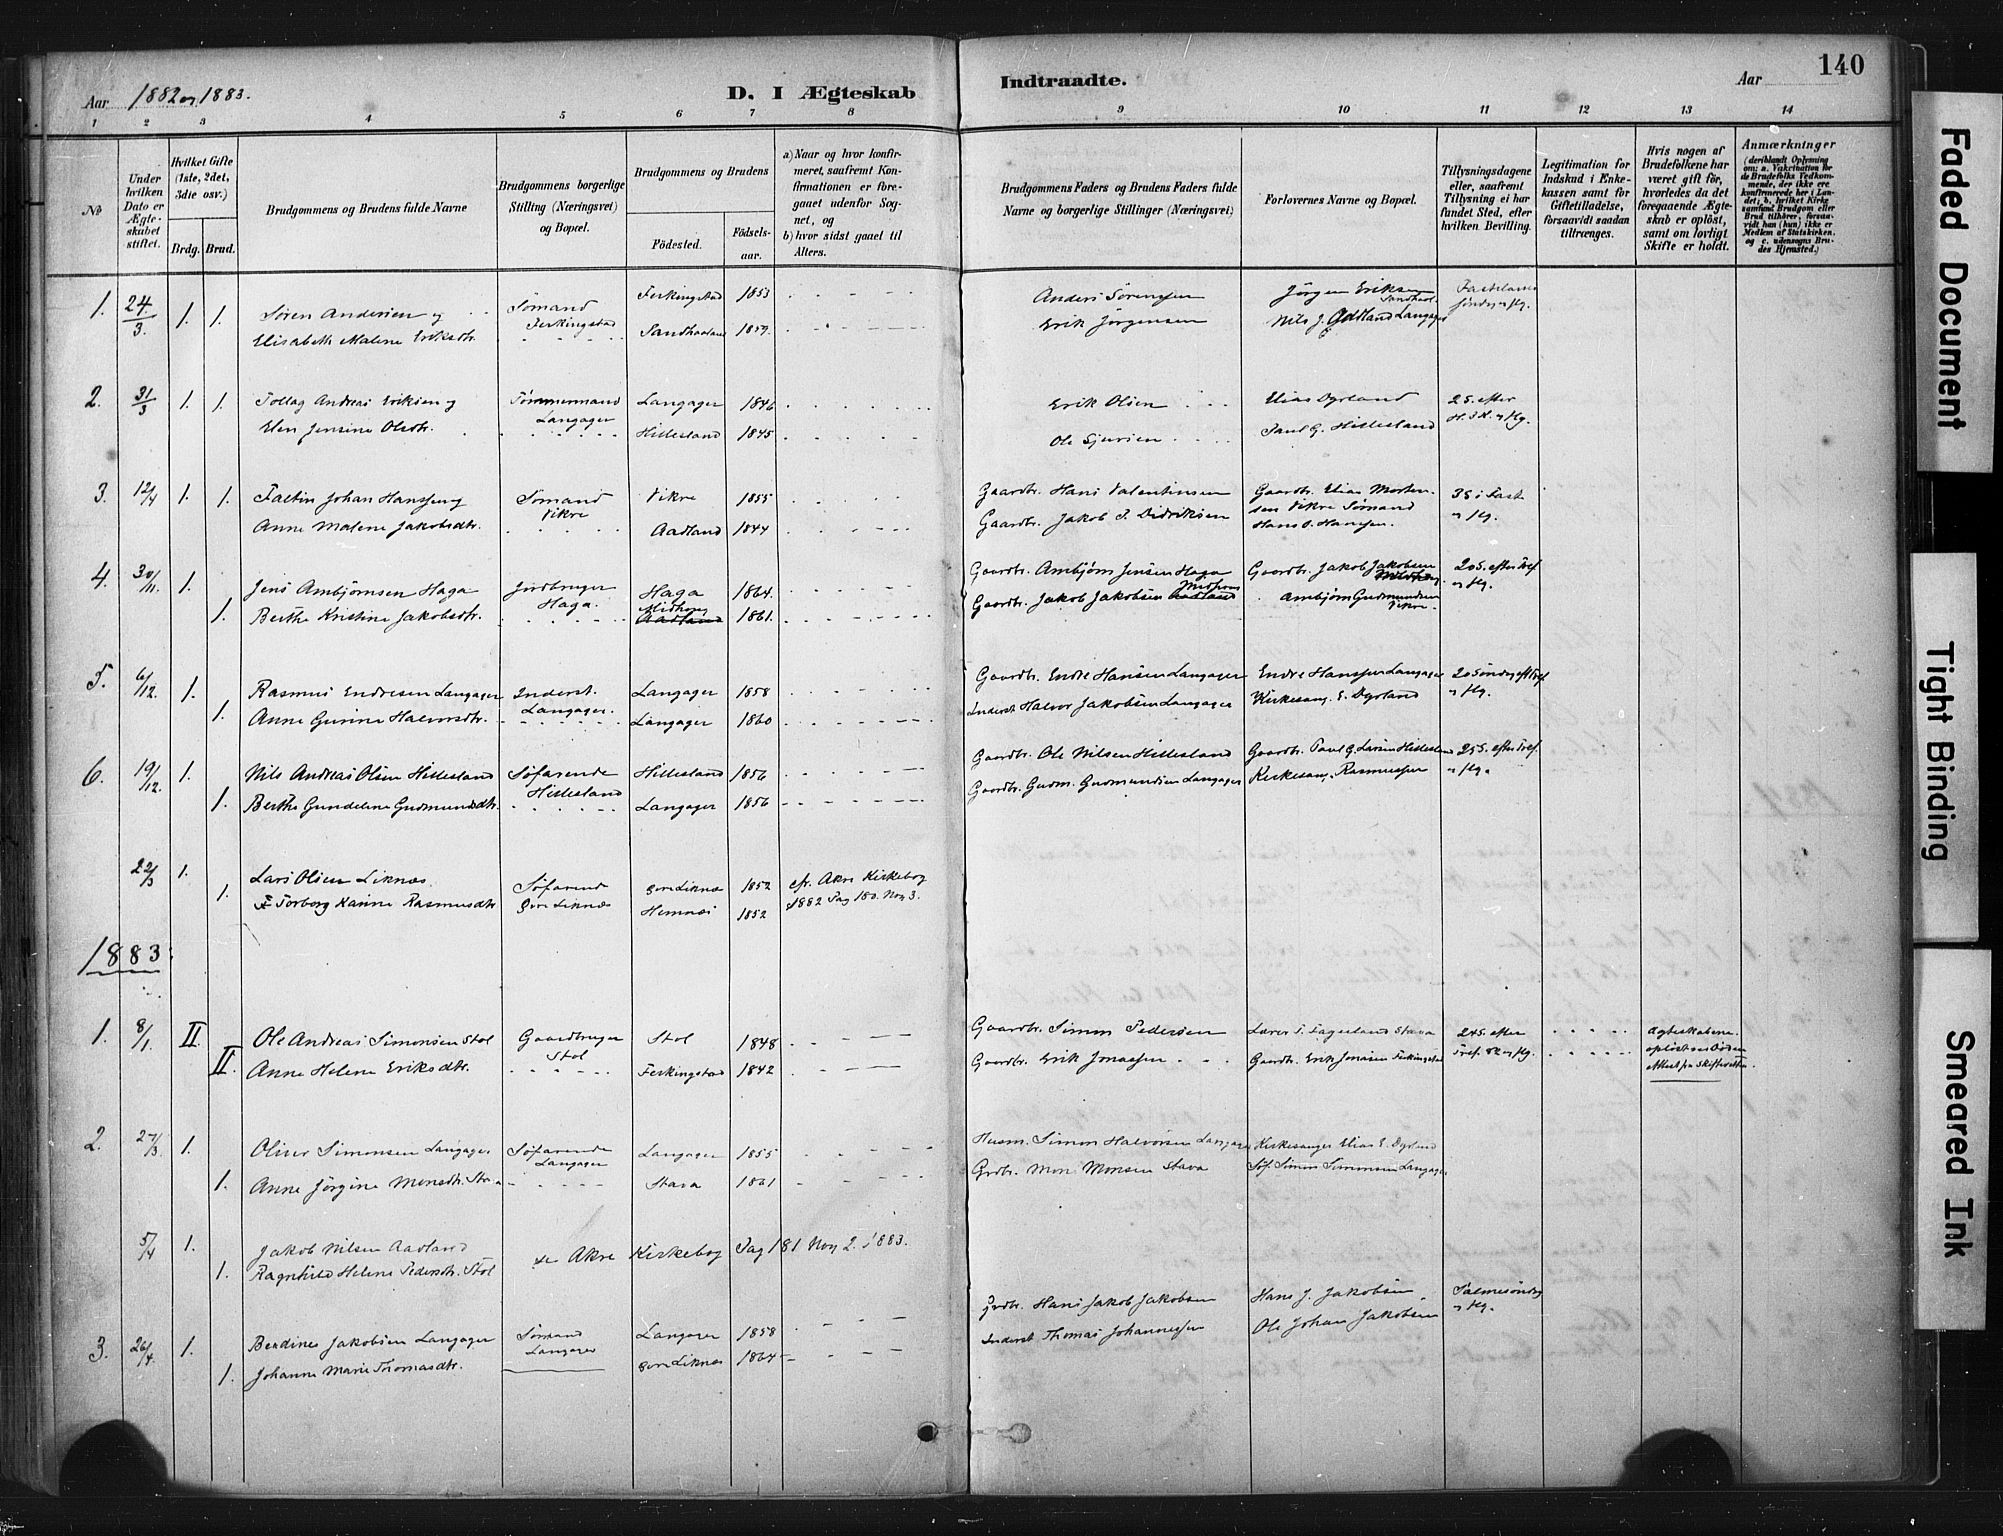 Aar 1882 og 1883.
D. I Ægteskab
Indtraadte.
Aar
140
1 2 3 4 5 6 7 8 9 10 11 12 13 14
No
Under hvilken Dato er Ægteskabet stiftet.
Hvilket Gifte (1ste, 2det, 3die osv.)
Brdg. Brud.
Brudgommens og Brudens fulde Navne
Brudgommens borgerlige Stilling (Næringsvei) og Bopæl.
Brudgommens og Brudens
Fødested.
Fødselsaar.
a) Naar og hvor konfirmeret, saafremt Konfirmationen er foregaaet udenfor Sognet, og
b) hvor sidst gaaet til Alters.
Brudgommens Faders og Brudens Faders fulde Navne og borgerlige Stillinger (Næringsvei)
Forlovernes Navne og Bopæl.
Tillysningsdagene eller, saafremt Tillysning ei har fundet Sted, efter hvilken Bevilling.
Legitimation for Indskud i Enkekassen samt for Giftetilladelse, forsaavidt saadan tiltrænges.
Hvis nogen af Brudefolkene har været gift før, hvorledes da det foregaaende Ægteskab er opløst, samt om lovligt Skifte er holdt.
Anmærkninger
(deriblandt Oplysning om: a. Vakcination for de Brudefolks Vedkommende, der ikke ere konfirmerede her i Landet; b. hvilket Kirkesamfund Brudgom eller Brud tilhører, forsaavidt han (hun) ikke er Medlem af Statskirken, og c. udensogns Brudes Hjemsted.)
1. 24/3. 1. 1. Søren Andersen og Sømand Ferkingstad Ferkingstad 1853 Anders Sørensen Jørgen Eriksen Sandhaal. Fastelavns Søndag og flg.
Elisabeth Malene Eriksdtr. Sandhaaland 1859. Erik Jørgensen Nils J. Langager
2. 31/3 1. 1. Tollag Andreas Eriksen og Tømmermand Langager Langager 1846 Erik Olsen Elias Dyrland 2 S. efter H. 3 K. og flg.
Elen Jensine Olsdtr. Hillesland 1845 Ole Sjursen Paul G. Hillesland
3. 12/4 1. 1. Faltin Johan Hanssen og Sømand Vikre Vikre 1855 Gaardbr. Hans Valentinsen Gaardbr. Elias Mortensen Vikre Sømand 3 S i Fast og flg.
Anne Malene Jakobsdtr. Aadland 1844 Gaardbr. Jakob T. Didriksen Hans J. Hanssen.
4. 30/11. 1. Jens Ambjørnsen Haga Jordbruger Haga. Haga 1864. Gaardbr. Ambjørn Jensen Haga Gaardbr. Jakob Jakobsen 20 S. efter Tref og flg.
1. Berthe Kristine Jakobsdtr. Midhaug Aadland 1861. Gaardbr. Jakob Jakobsen Midhaug Aadland Ambjørn Gudmundsen Vikre.
5. 6/12. 1. Rasmus Endresen Langager Inderst. Langager. Langager 1858 Gaardbr. Endre Hansen Langager Endre Hanssen Langager 20 Søndag eft Tref og flg.
1. Anne Gurine Halvorsdtr. Langager 1860 Inderst Halvor Jakobsen Langager Kirkesang. E. Dyrland
6. 19/12. 1. Nils Andreas Olsen Hillesland Søfarende Hillesland Hillesland 1856 Gaardbr. Ole Nilsen Hillesland Gaardbr. Paul G. Larsen Hillesland 25 S. efter Tref. og flg.
1. Berthe Gundeline Gudmundsdtr. Langager 1856 Gaardbr. Gudm. Gudmundsen Langager Kirkesang. Rasmussen
22/3 1. Lars Olsen Liknæs. Søfarend Liknæs Liknæs 1852 cfr. Akre Kirkebog
1. Torborg Karine Rasmusdtr Hemnæs 1852 1882 Pag 180. No 3.
1883:
1. 8/1. II. Ole Andreas Simonsen Stol Gaardbruger Stol Stol 1848 Gaardbr. Simon Pedersen Lærer T. Fagerland Stava 24 S. efter Tref. og flg. Ægteskabene opløst ved Døden
II. Anne Helene Eriksdtr. Ferkingstad 1842 Gaardbr. Erik Jonassen Gaardbr. Erik Jonasen Ferkingstad Attest fra Skifteretten.
2. 27/3. 1. Oliver Simonsen Langager Søfarende Langager Langager 1855 Husm. Simon Halvorsen Langager Kirkesanger Elias E. Dyrland
1. Anne Jørgine Monsdtr. Stava Stava 1861 Grdbr. Mon Monsen Stava Søf. Simon Simonsen Langager
5/4 1. Jakob Nilsen Aadland se Akre Kirkebog Pag 181 No 2. 1883.
1. Ragnhild Helene Pedersdtr. Stol
3. 26/4. 1. Berdines Jakobsen Langager Sømand Langager Langager 1858 Grdbr. Hans Jakob Jakobsen Hans J. Jakobsen Palmesøndag og flg.
1. Johanne Marie Thomasdtr. Liknæs 1864 Inderst Thomas Johannessen Ole Johan Jakobsen
Faded Document
Tight Binding
Smeared Ink